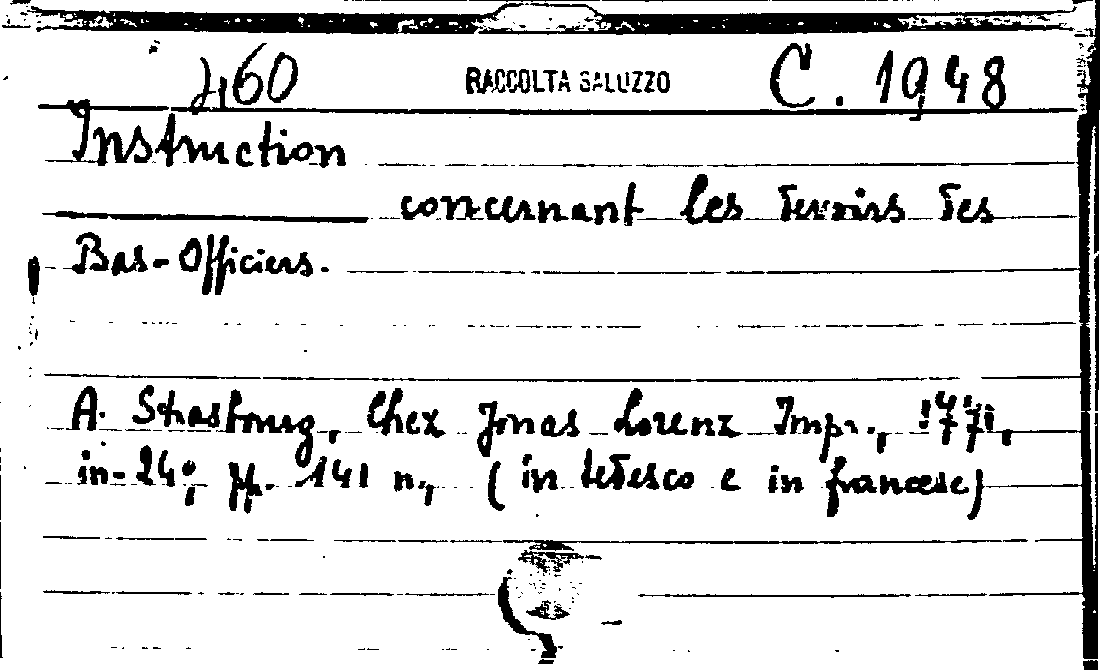 460 RACCOLTA SALUZZO C. 1948
Instruction
concernant les devoirs des
Bas-Officiers.
A. Strasbourg, Chez Jonas Lorenz Impr., 1771,
in-24°, pp. 141 n., (in tedesco e in francese)